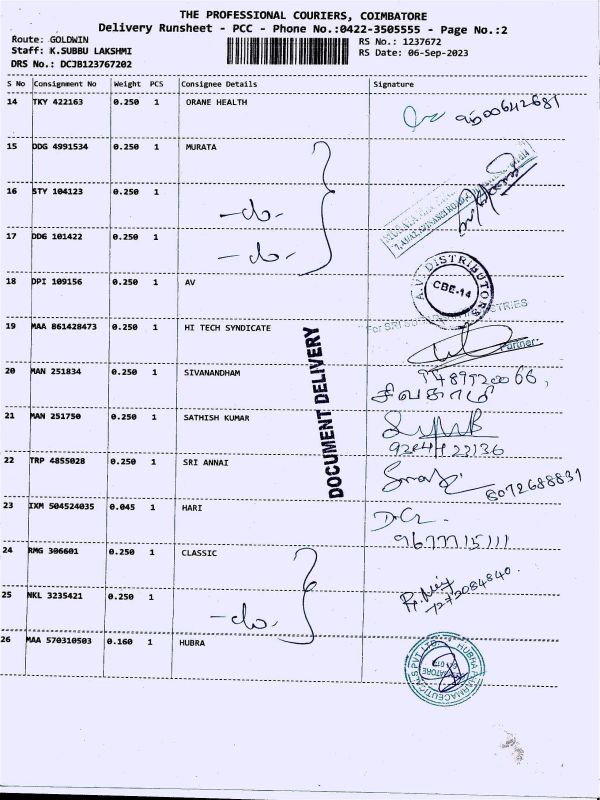 THE PROFESSIONAL COURIERS, COIMBATORE
Delivery Runsheet - PCC - Phone No.:0422-3505555 - Page No.:2
Route: GOLDWIN
Staff: K.SUBBU LAKSHMI
DRS No.: DCJB123767202
RS No.: 1237672
RS Date: 06-Sep-2023
S No Consignment No Weight PCS Consignee Details Signature
14 TKY 422163 0.250 1 ORANE HEALTH
9500642681
15 DDG 4991534 0.250 1 MURATA
16 STY 104123 0.250 1 -do-
17 DDG 101422 0.250 1 -do-
18 DPI 109156 0.250 1 AV
A.V. DISTRIBUTORS
CBE-14
19 MAA 861428473 0.250 1 HI TECH SYNDICATE
For SRI
Partner.
DOCUMENT DELIVERY
20 MAN 251834 0.250 1 SIVANANDHAM
சிவகாமி
21 MAN 251750 0.250 1 SATHISH KUMAR
22 TRP 4855028 0.250 1 SRI ANNAI
8072688831
23 IXM 504524035 0.045 1 HARI
9677715111
24 RMG 306601 0.250 1 CLASSIC
7272084840.
25 NKL 3235421 0.250 1 -do-
26 MAA 570310503 0.160 1 HUBRA